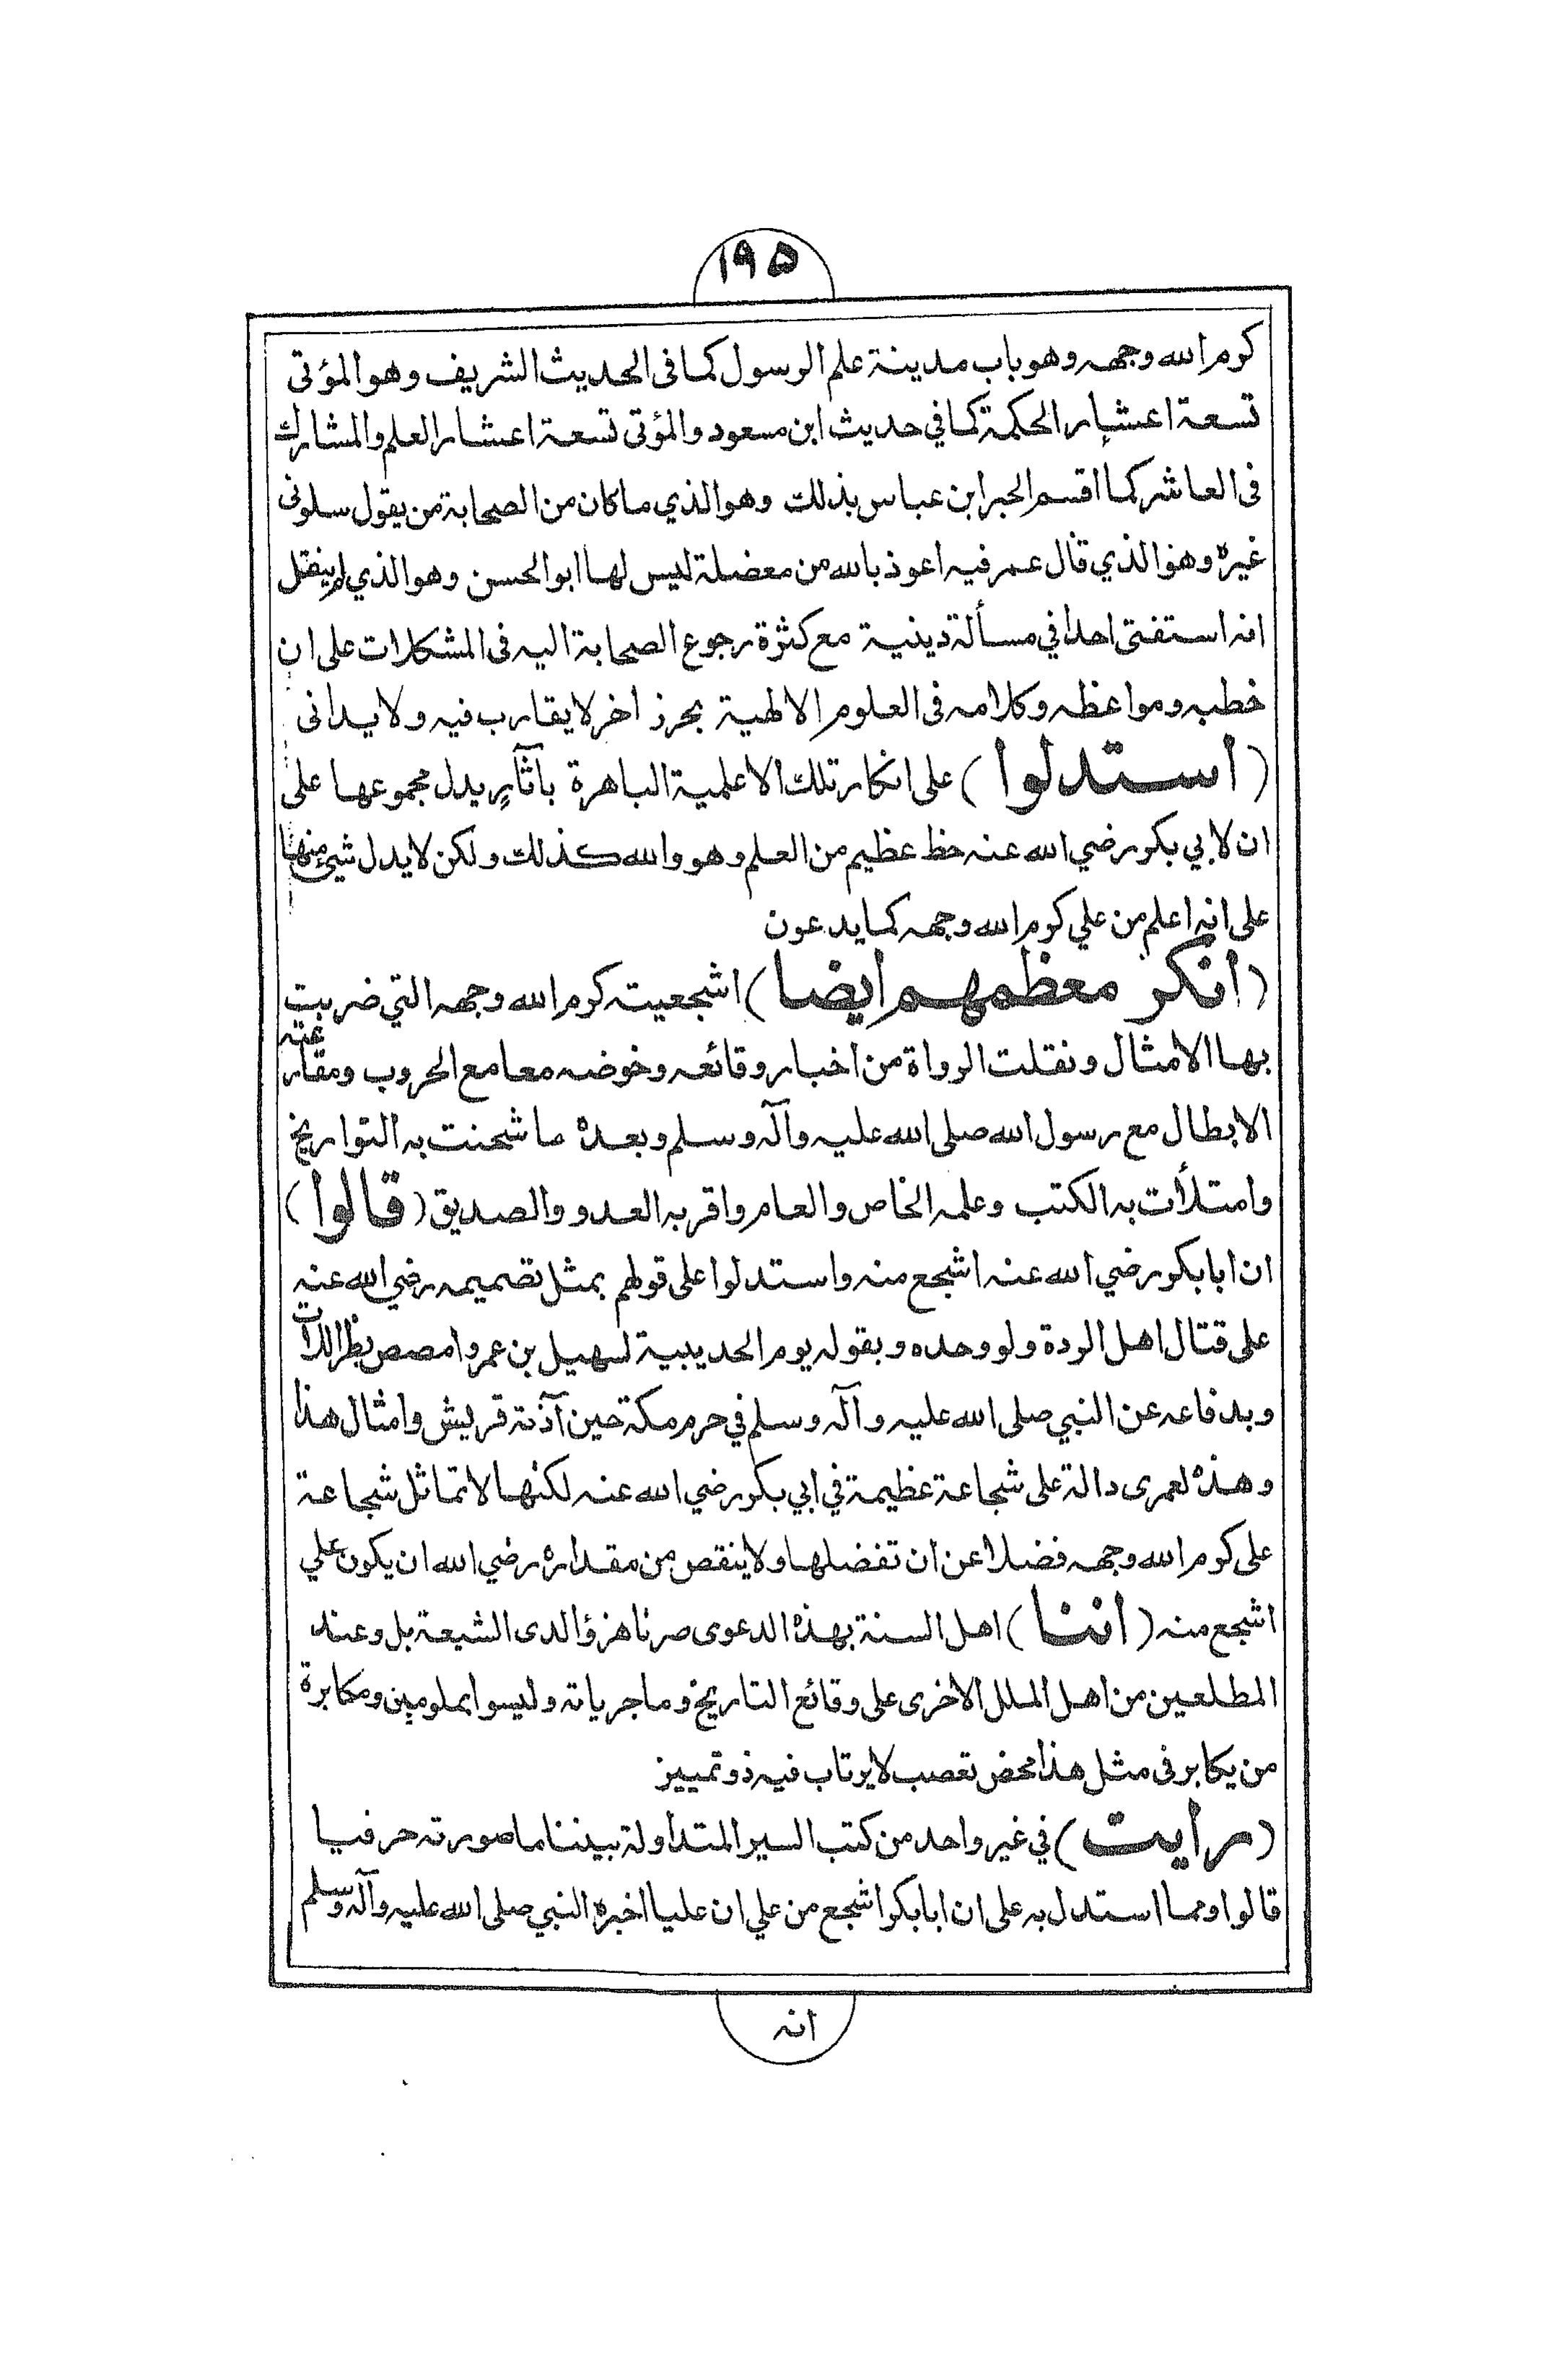 ١٩٥
كرم الله وجهه وهو باب مدينة علم الرسول كما فى الحديث الشريف وهو المؤتى
تسعة اعشار الحكمة كما في حديث ابن مسعود والمؤتى تسعة اعشار العلم والمشارك
فى العاشر كما اقسم الحبر ابن عباس بذلك وهو الذي ما كان من الصحابة من يقول سلونى
غيره وهو الذي قال عمر فيه اعوذ بالله من معضلة ليس لها ابو الحسن وهو الذي لم ينقل
انه استفتى احدا في مسألة دينية مع كثرة رجوع الصحابة اليه فى المشكلات على ان
خطبه ومواعظه وكلامه فى العلوم الالهية بحرز اخر لا يقارب فيه ولا يدانى
(استدلوا) على انكار تلك الاعلمية الباهرة بآثار يدل مجموعها على
ان لابي بكر رضي الله عنه حظ عظيم من العلم وهو والله كذلك ولكن لا يدل شيئ منها
على انه اعلم من علي كرم الله وجهه كما يدعون
(أنكر معظمهم ايضا) اشجعيته كرم الله وجهه التي ضربت
بها الامثال ونقلت الرواة من اخبار وقائعه وخوضه معامع الحروب ومقارعته
الابطال مع رسول الله صلى الله عليه وآله وسلم وبعده ما شحنت به التواريخ
وامتلأت به الكتب وعلمه الخاص والعام واقر به العدو والصديق (قالوا)
ان ابا بكر رضي الله عنه اشجع منه واستدلوا على قولهم بمثل تصميمه رضي الله عنه
على قتال اهل الردة ولو وحده وبقوله يوم الحديبية لسهيل بن عمرو امصص بظر اللات
وبدفاعه عن النبي صلى الله عليه وآله وسلم في حرم مكة حين آذته قريش وامثال هذا
وهذه لعمرى دالة على شجاعة عظيمة في ابي بكر رضي الله عنه لكنها لا تماثل شجاعة
على كرم الله وجهه فضلا عن ان تفضلها ولا ينقص من مقداره رضي الله ان يكون علي
اشجع منه (اننا) اهل السنة بهذه الدعوى صرنا هزؤا لدى الشيعة بل وعند
المطلعين من اهل الملل الاخرى على وقائع التاريخ وماجرياته وليسوا بملومين ومكابرة
من يكابر فى مثل هذا محض تعصب لا يرتاب فيه ذو تمييز
(رأيت) في غير واحد من كتب السير المتداولة بيننا ما صورته حرفيا
قالوا ومما استدل به على ان ابا بكر اشجع من علي ان عليا اخبره النبي صلى الله عليه وآله وسلم
انه